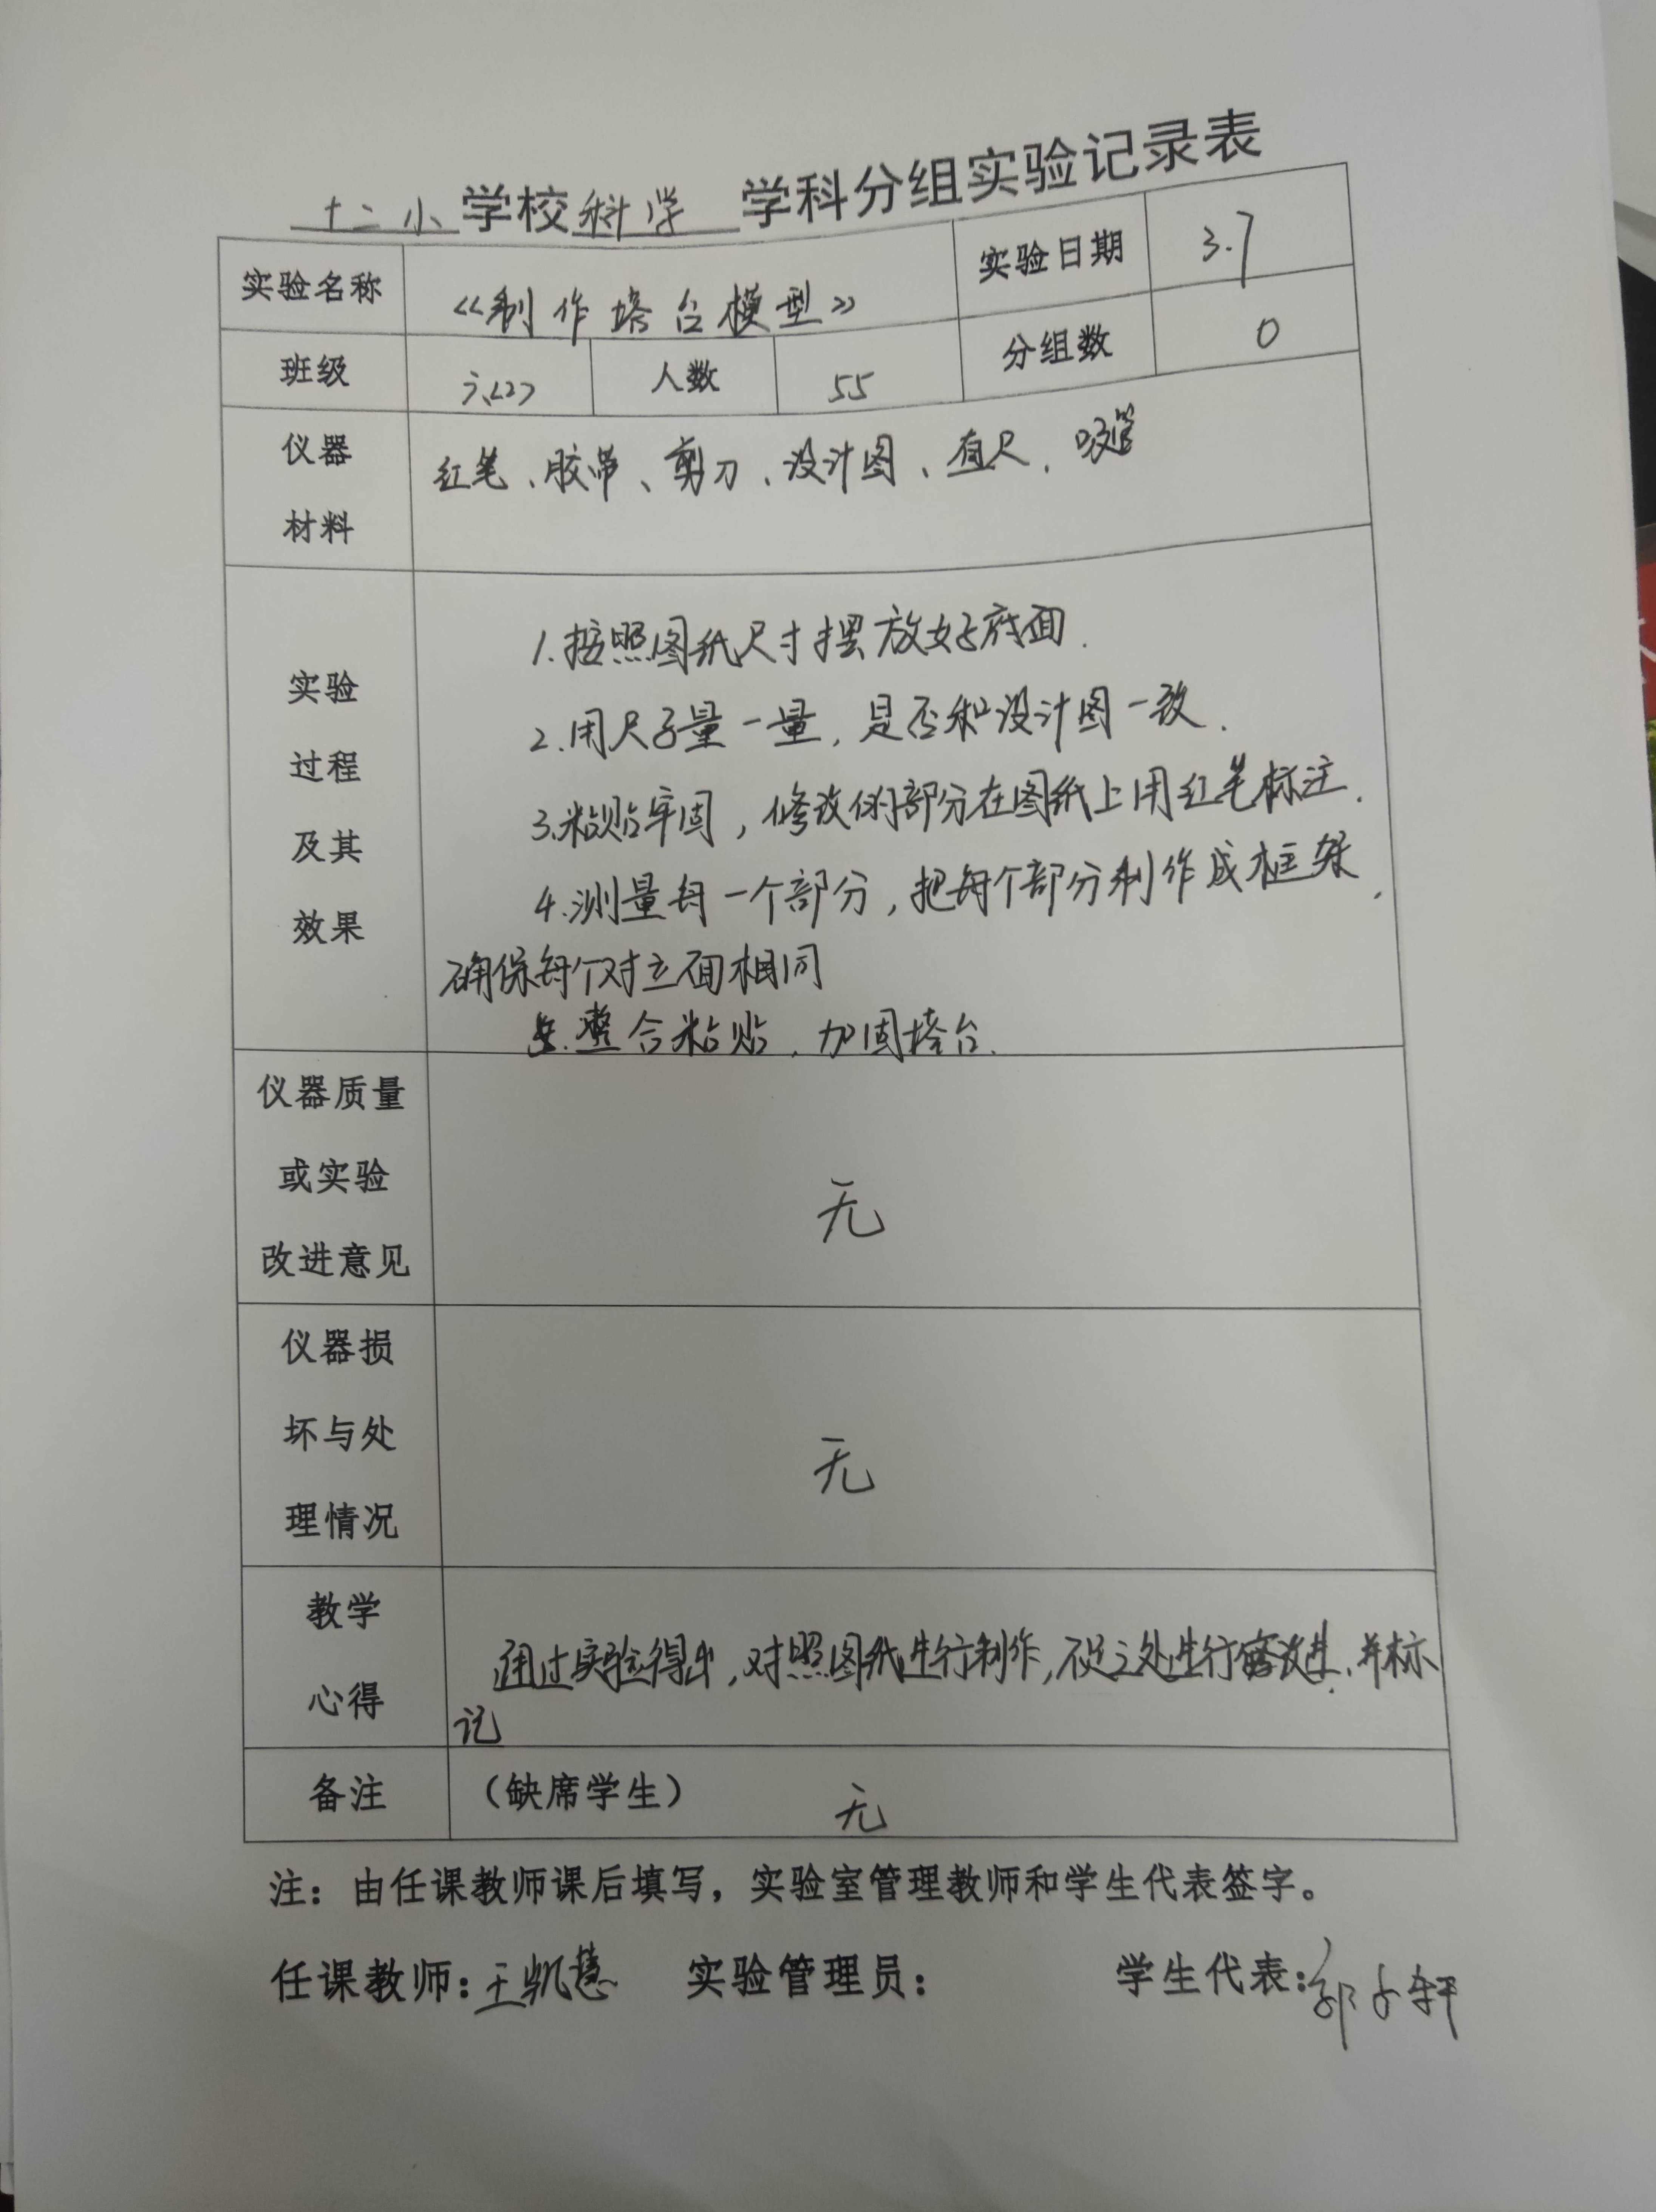 十二小学校科学学科分组实验记录表
实验名称 《制作塔台模型》 实验日期 3.7
班级 六(2) 人数 55 分组数 0
仪器材料 红笔、胶带、剪刀、设计图、直尺、吸管
实验过程及其效果
1.按照图纸尺寸摆放好底面.
2.用尺子量一量,是否和设计图一致.
3.粘贴牢固,修改的部分在图纸上用红笔标注.
4.测量每一个部分,把每个部分制作成框架,
确保每个对立面相同
5.整合粘贴,加固塔台.
仪器质量或实验改进意见 无
仪器损坏与处理情况 无
教学心得
通过实验得出,对照图纸进行制作,不足之处进行改进,并标
记
备注 (缺席学生) 无
注:由任课教师课后填写,实验室管理教师和学生代表签字。
任课教师:王凯慧 实验管理员: 学生代表:郭子轩